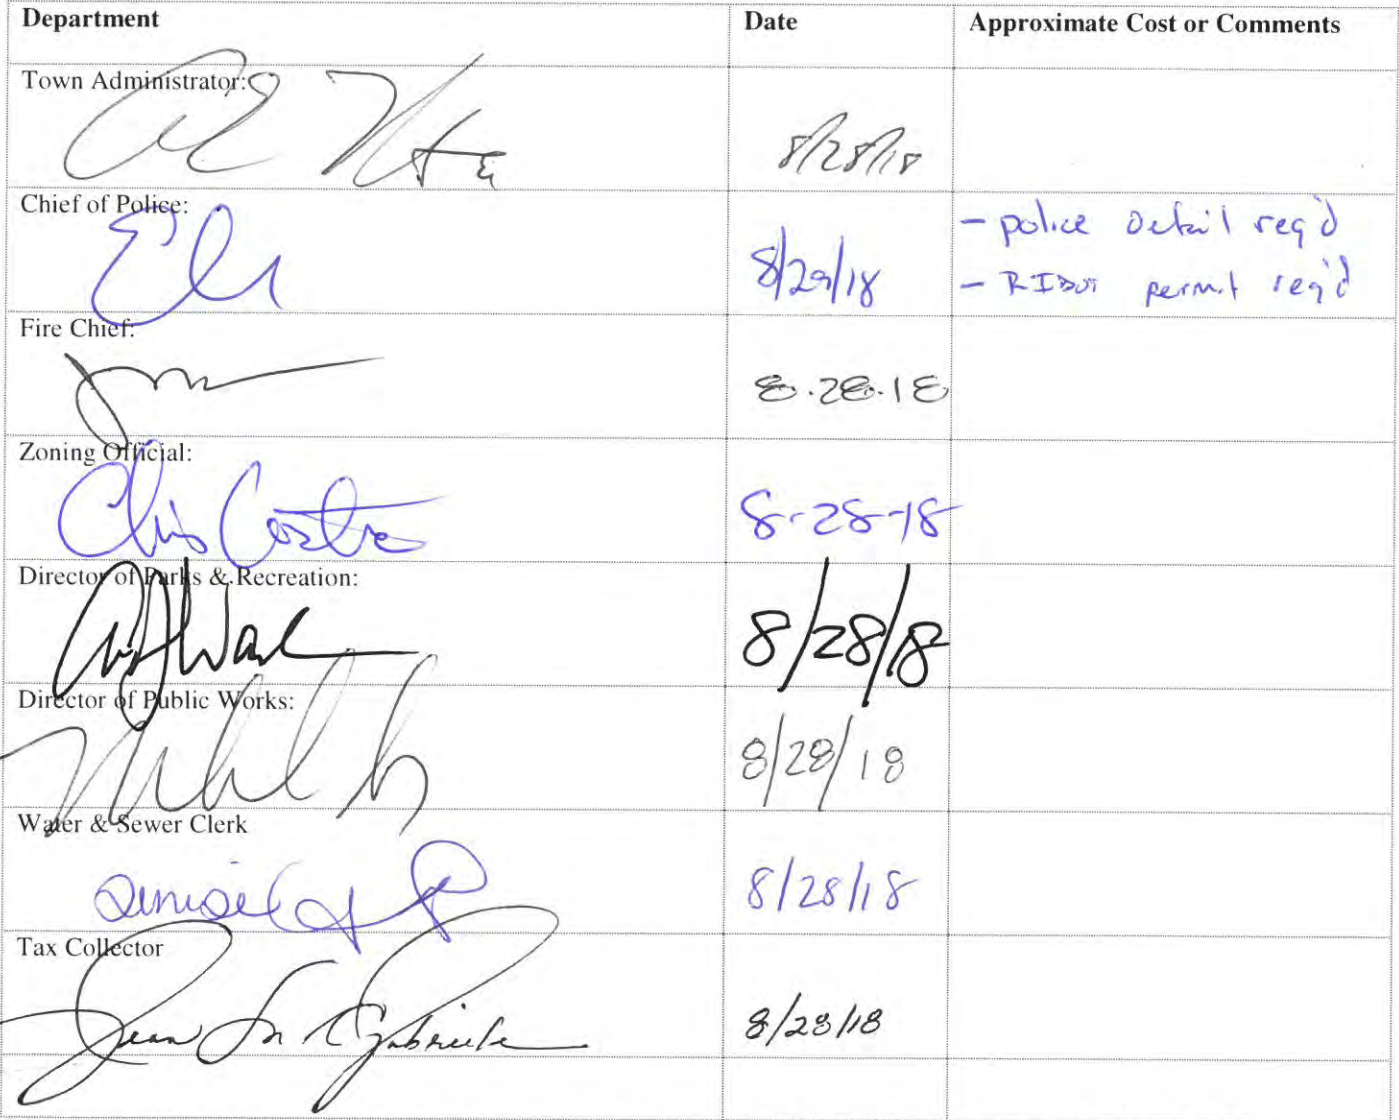 Department Date Approximate Cost or Comments
Town Administrator:
8/28/18
Chief of Police:
8/29/18
- police detail req'd
- RIDOT permit req'd
Fire Chief:
8.28.18
Zoning Official:
Chris Costa 8-28-18
Director of Parks & Recreation:
8/28/18
Director of Public Works:
8/28/18
Water & Sewer Clerk
8/28/18
Tax Collector
8/28/18